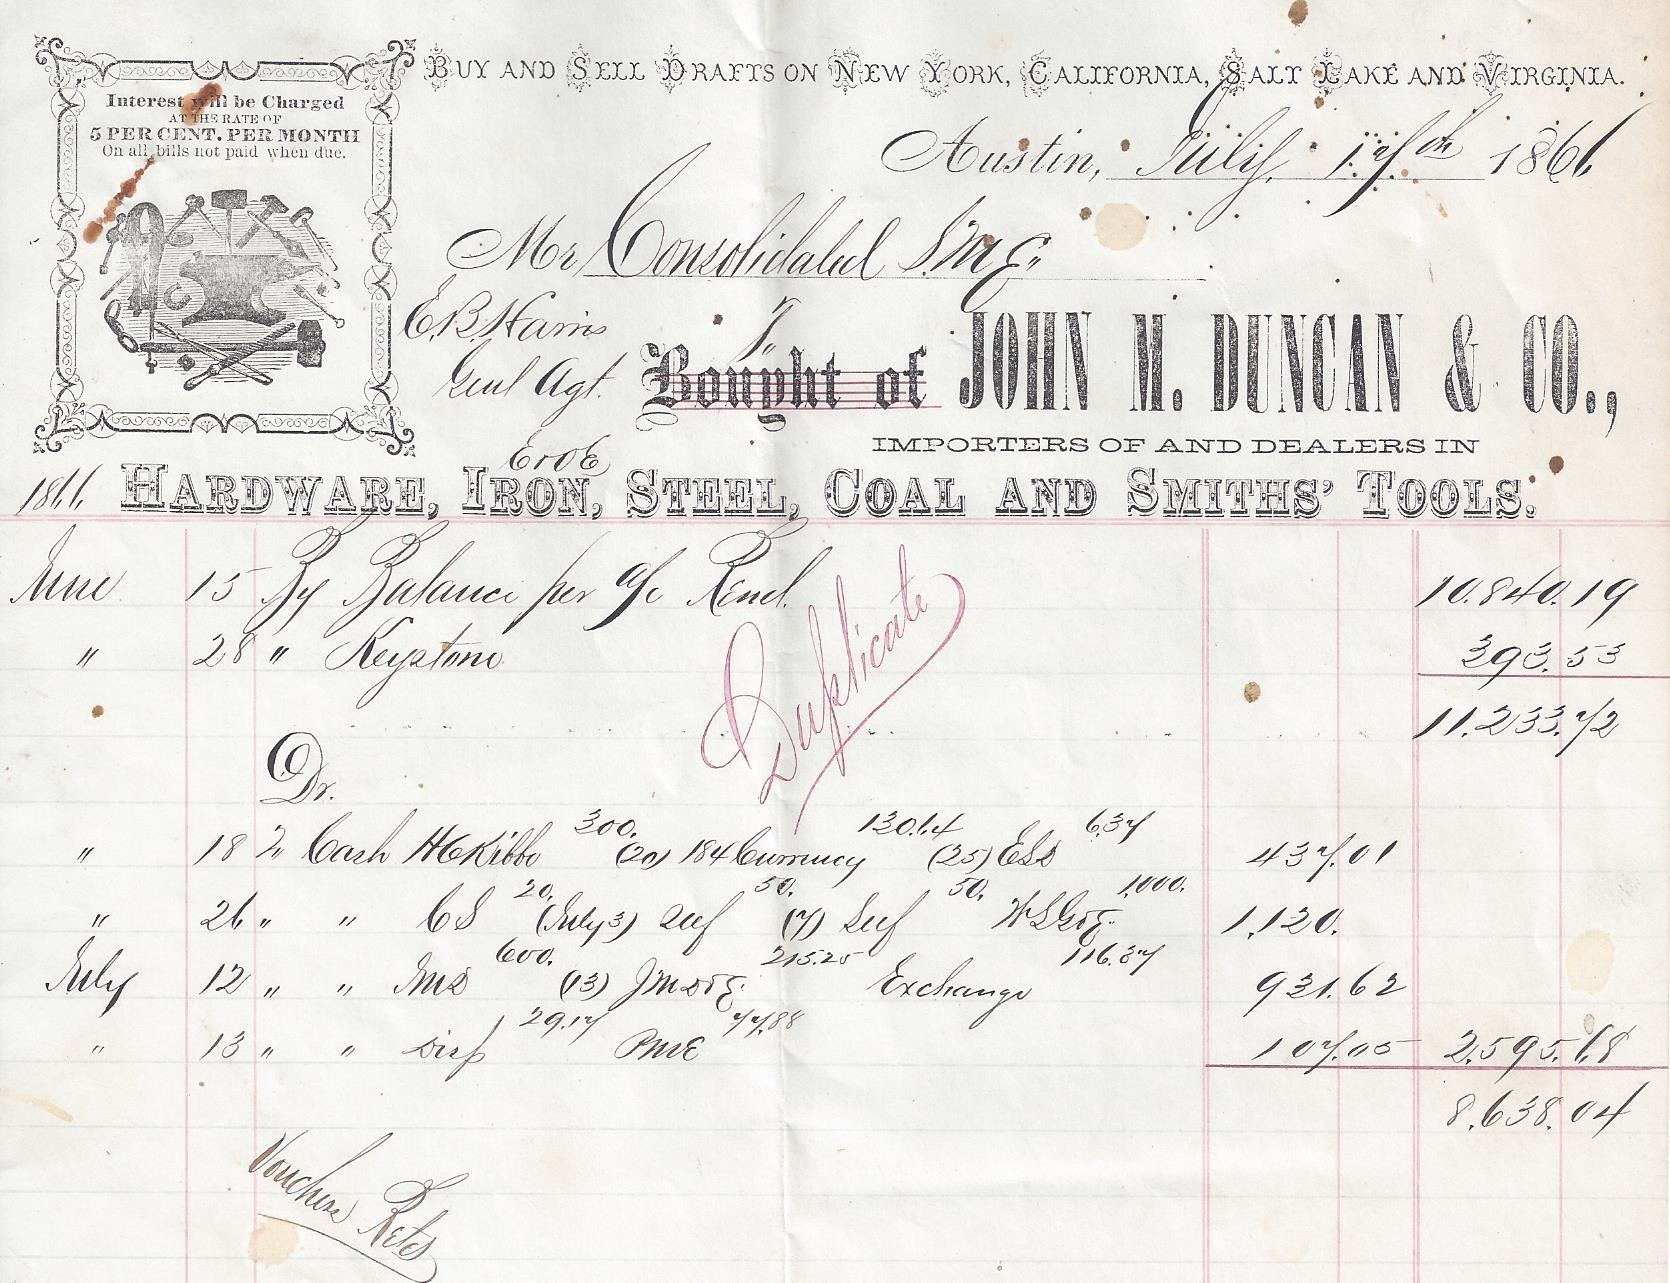 Interest will be Charged
AT THE RATE OF
5 PER CENT. PER MONTH
On all bills not paid when due.
BUY AND SELL DRAFTS ON NEW YORK, CALIFORNIA, SALT LAKE AND VIRGINIA.
Austin, July, 17th 1866
Mr Consolidated S.M Co.
E.B. Harris
Genl Agt.
Bought of JOHN M. DUNCAN & CO.,
IMPORTERS OF AND DEALERS IN
E & O E
1866 HARDWARE, IRON, STEEL, COAL AND SMITHS' TOOLS.
June 15 By Balance per a/c Rend. 10.840.19
" 28 " Keystone 393.53
11.233.72
Duplicate
Dr.
300. 130.64 6.37
" 18 To Cash (20) 184 Currency (25) 437.01
20. 50. 50. 1,000.
" 26 " " (July 3) (7) 1,120.
600. 215.25 116.37
July 12 " " (13) Exchange 931.62
29.17 77.88
" 13 " " 107.05 2.595.68
8.638.04
Vouchers Retd